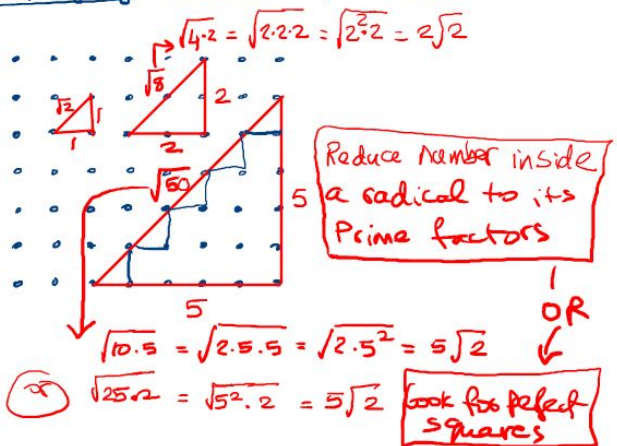 √8 → √4·2 = √2·2·2 = √2²·2 = 2√2
√2
1
1
2
2
√50
5
5
Reduce number inside
a radical to its
Prime factors
OR
√10·5 = √2·5·5 = √2·5² = 5√2
or
√25·2 = √5²·2 = 5√2
Look for perfect
squares